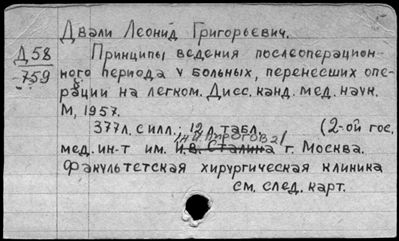 Двали Леонид Григорьевич.
Д58
759
Принципы ведения послеоперацион-
ного периода у больных, перенесших опе-
рации на легком. Дисс. канд. мед. наук.
М, 1957.
377л. с илл.; 12л. табл. (2-ой гос.
мед. ин-т им. И.В. Сталина г. Москва.
Факультетская хирургическая клиника
см. след. карт.